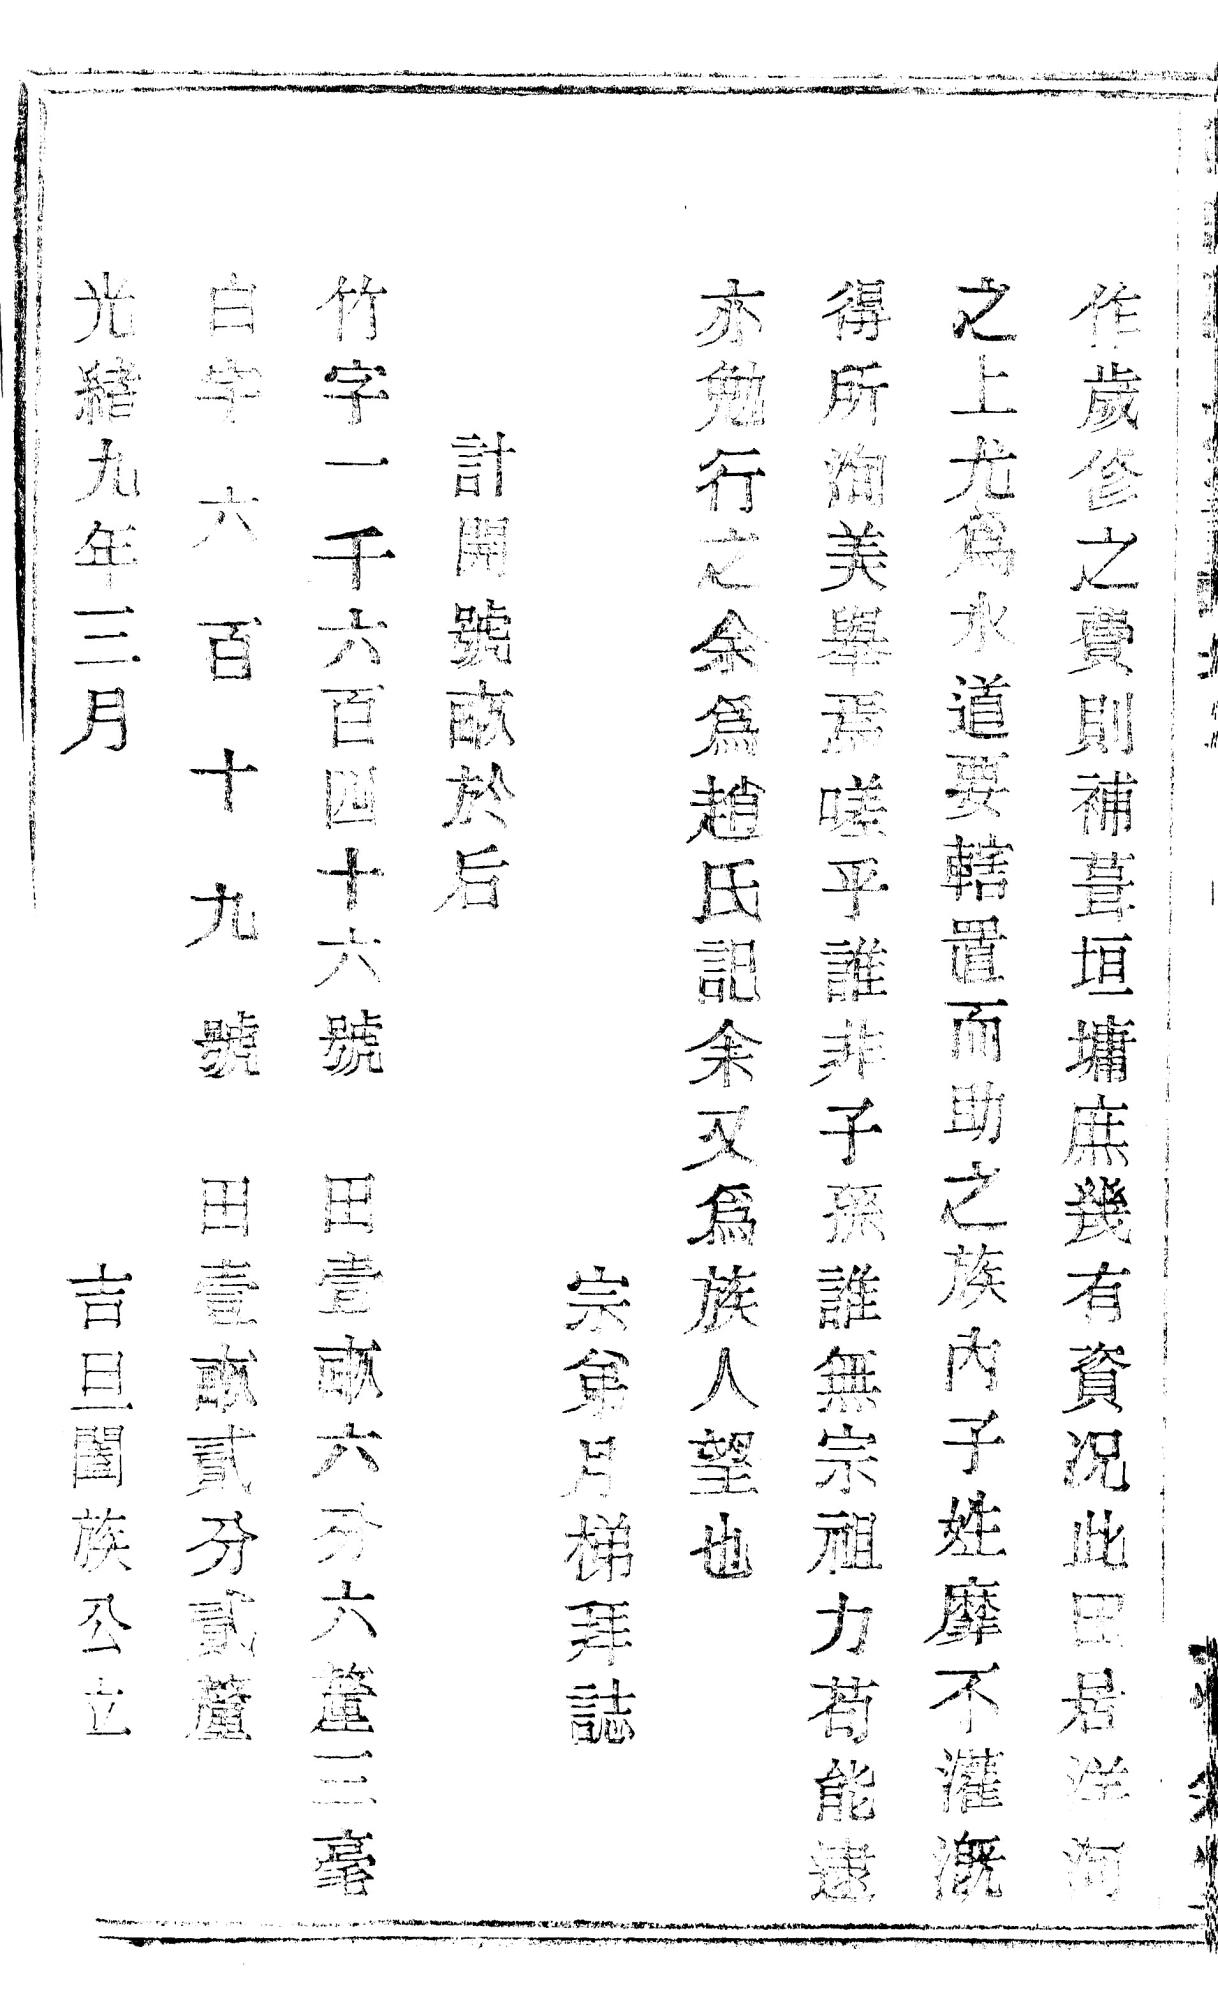 作歲修之費則補葺垣墉庶幾有資况此田居洋河
之上尤爲水道要轄置而助之族內子姓靡不灌漑
得所洵美舉焉嗟乎誰非子孫誰無宗祖力苟能逮
亦勉行之余爲趙氏記余又爲族人望也
宗弟月梯拜誌
計開號畝於后
竹字一千六百四十六號　田壹畝六分六釐三毫
白字六百十九號　田壹畝貳分貳釐
光緒九年三月　吉旦闔族公立